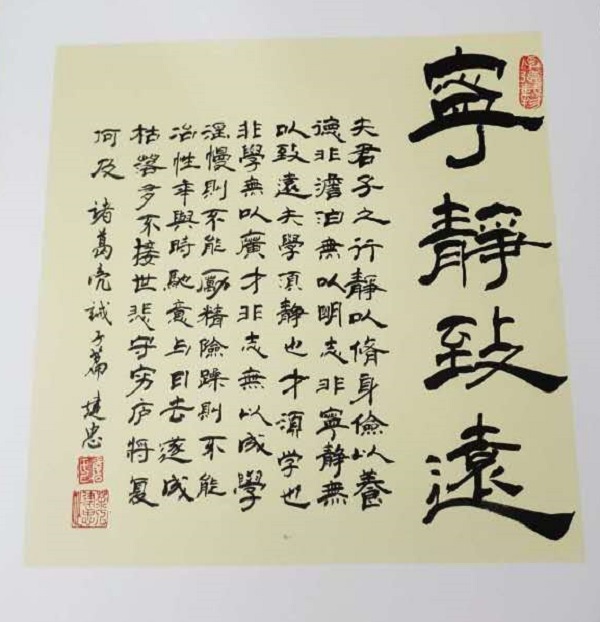 寧靜致遠
夫君子之行靜以脩身儉以養
德非澹泊無以明志非寧靜無
以致遠夫學須靜也才須学也
非學無以廣才非志無以成學
淫慢則不能勵精險躁則不能
冶性年與時馳意与日去遂成
枯落多不接世悲守穷庐將复
何及 諸葛亮誡子篇 建忠